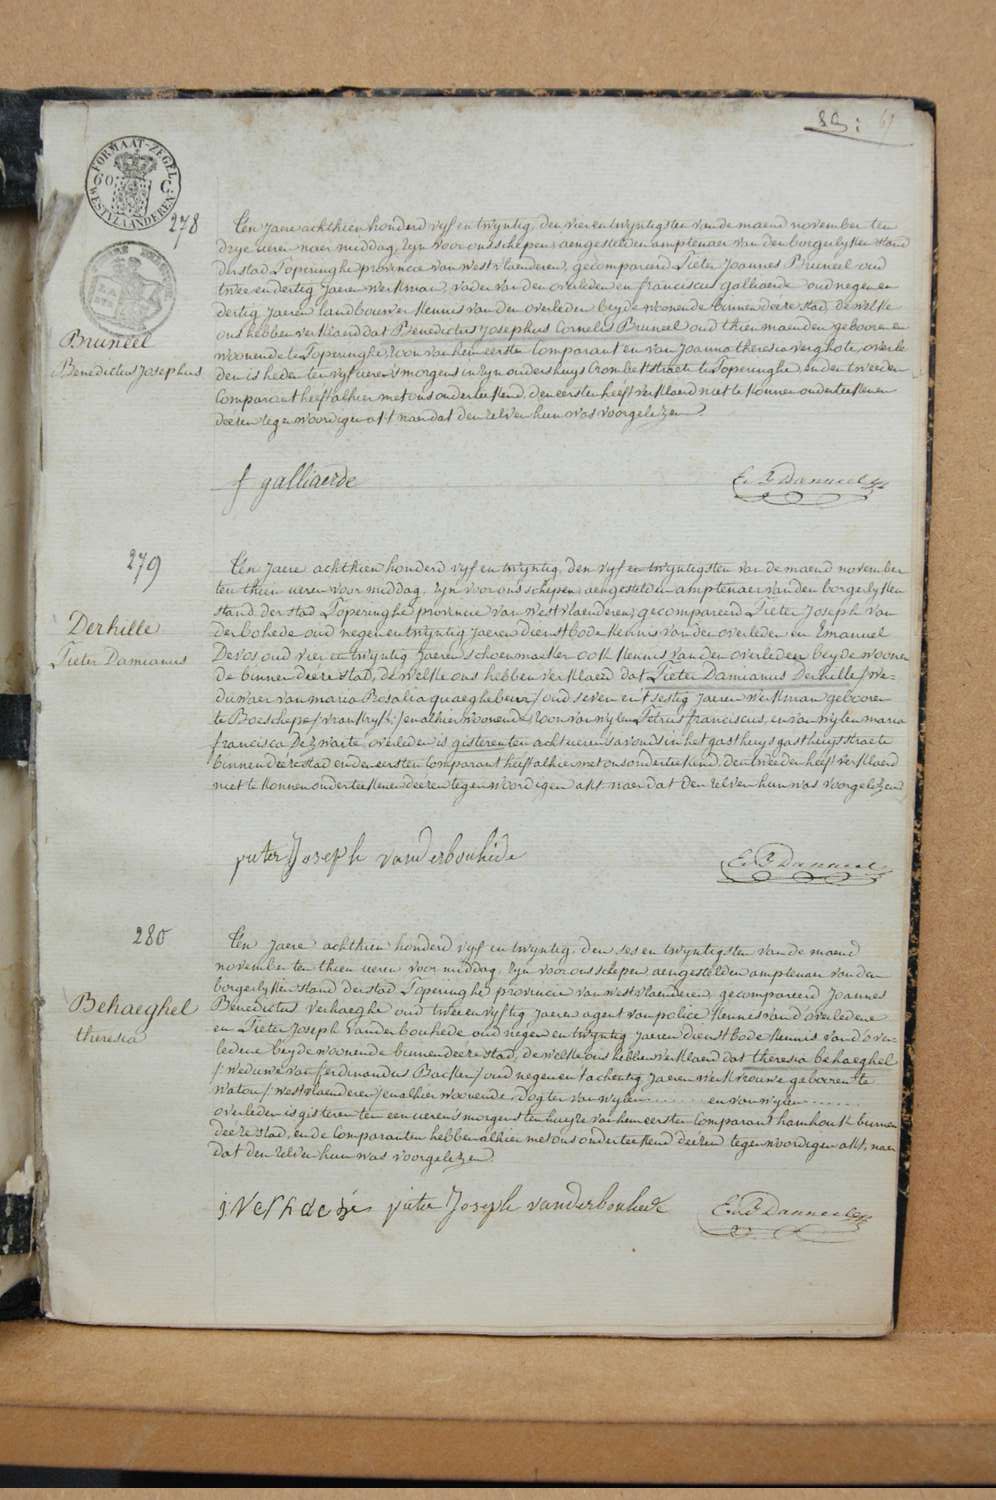 89:
FORMAAT-ZEGEL
60 C
WESTVLAANDEREN
278
Bruneel
Benedictus Josephus
Ten jaere achthien honderd vyf en twyntig, den vier en twyntigsten van de maend november ten
drye ueren naer middag, zyn voor ons schepen aengestelden amptenaer van den borgerlyken stand
der stad Poperinghe provincie van westvlaenderen, gecompareerd Pieter Joannes Bruneel oud
twee en dertig Jaeren werkman, vader van den overleden en franciscus galliaerde oud negen en
dertig jaeren landbouwer kennis van den overleden beyde woonende binnen deeze stad, de welke
ons hebben verklaerd dat Benedictus Josephus Cornelis Bruneel oud thien maenden gebooren en
woonende te Poperinghe, zoon van hem eersten Comparant en van Joanna theresia verghote, overle-
den is heden ten vyf ueren s'morgens in zyn ouders huys Crombekstraete te Poperinghe, en den tweeden
Comparant heeft alhier met ons onderteekend, den eersten heeft verklaerd niet te konnen onderteekenen
deezen tegenwoordigen akt naer dat den zelven hun was voorgelezen.
f galliaerde
E. P. Danneel
279
Derhille
Pieter Damianus
Ten Jaere achthien honderd vyf en twyntig, den vyf en twyntigsten van de maend november
ten thien ueren voor middag, zyn voor ons schepen aengestelden amptenaer van den borgerlyken
stand der stad Poperinghe provincie van westvlaenderen, gecompareerd Pieter Joseph van
derbohede oud negen en twyntig Jaeren dienstbode kennis van den overleden en Emanuel
Devos oud vier en twyntig Jaeren schoenmaeker ook kennis van den overleden beyde woonen
de binnen deeze stad, de welke ons hebben verklaerd dat Pieter Damianus Derhille / we-
duwaer van maria Rosalia quaeghebeur / oud seven en t'sestig jaeren werkman gebooren
te Boeschepe / vrankryk / en alhier woonende, zoon van wylen Petrus franciscus, en van wylen maria
francisca De zwarte, overleden is gisteren ten acht ueren s'avonds in het gasthuys gasthuys straete
binnen deeze stad en den eersten Comparant heeft alhier met ons onderteekend, den tweeden heeft verklaerd
niet te konnen onderteekenen deezen tegenwoordigen akt naer dat den zelven hun was voorgelezen
pieter Joseph vanderbouhede
E. P. Danneel
280
Behaeghel
theresia
Ten Jaere achthien honderd vyf en twyntig, den ses en twyntigsten van de maend
november ten thien ueren voor middag, zyn voor ons schepen aengestelden amptenaer van den
borgerlyken stand der stad Poperinghe provincie van westvlaenderen, gecompareerd Joannes
Benedictus verhaeghe oud twee en vyftig Jaeren agent van police kennis van d'overledene
en Pieter Joseph Vanderbouhede oud negen en twyntig Jaeren dienstbode kennis van d'over-
ledene beyde woonende binnen deeze stad, de welke ons hebben verklaerd dat theresia behaeghel
/ weduwe van ferdinandus Backer / oud negen en t'achentig jaeren werkvrouwe gebooren te
watou / westvlaenderen / en alhier woonende, dogter van wylen ....... en van wylen .......
overleden is gisteren ten een ueren s'morgens ten huyze van hem eersten Comparant hamhouk binnen
deeze stad, en de Comparanten hebben alhier met ons onderteekend deezen tegenwoordigen akt, naer
dat den zelven hun was voorgelezen.
pieter Joseph vanderbouhede
E. P. Danneel